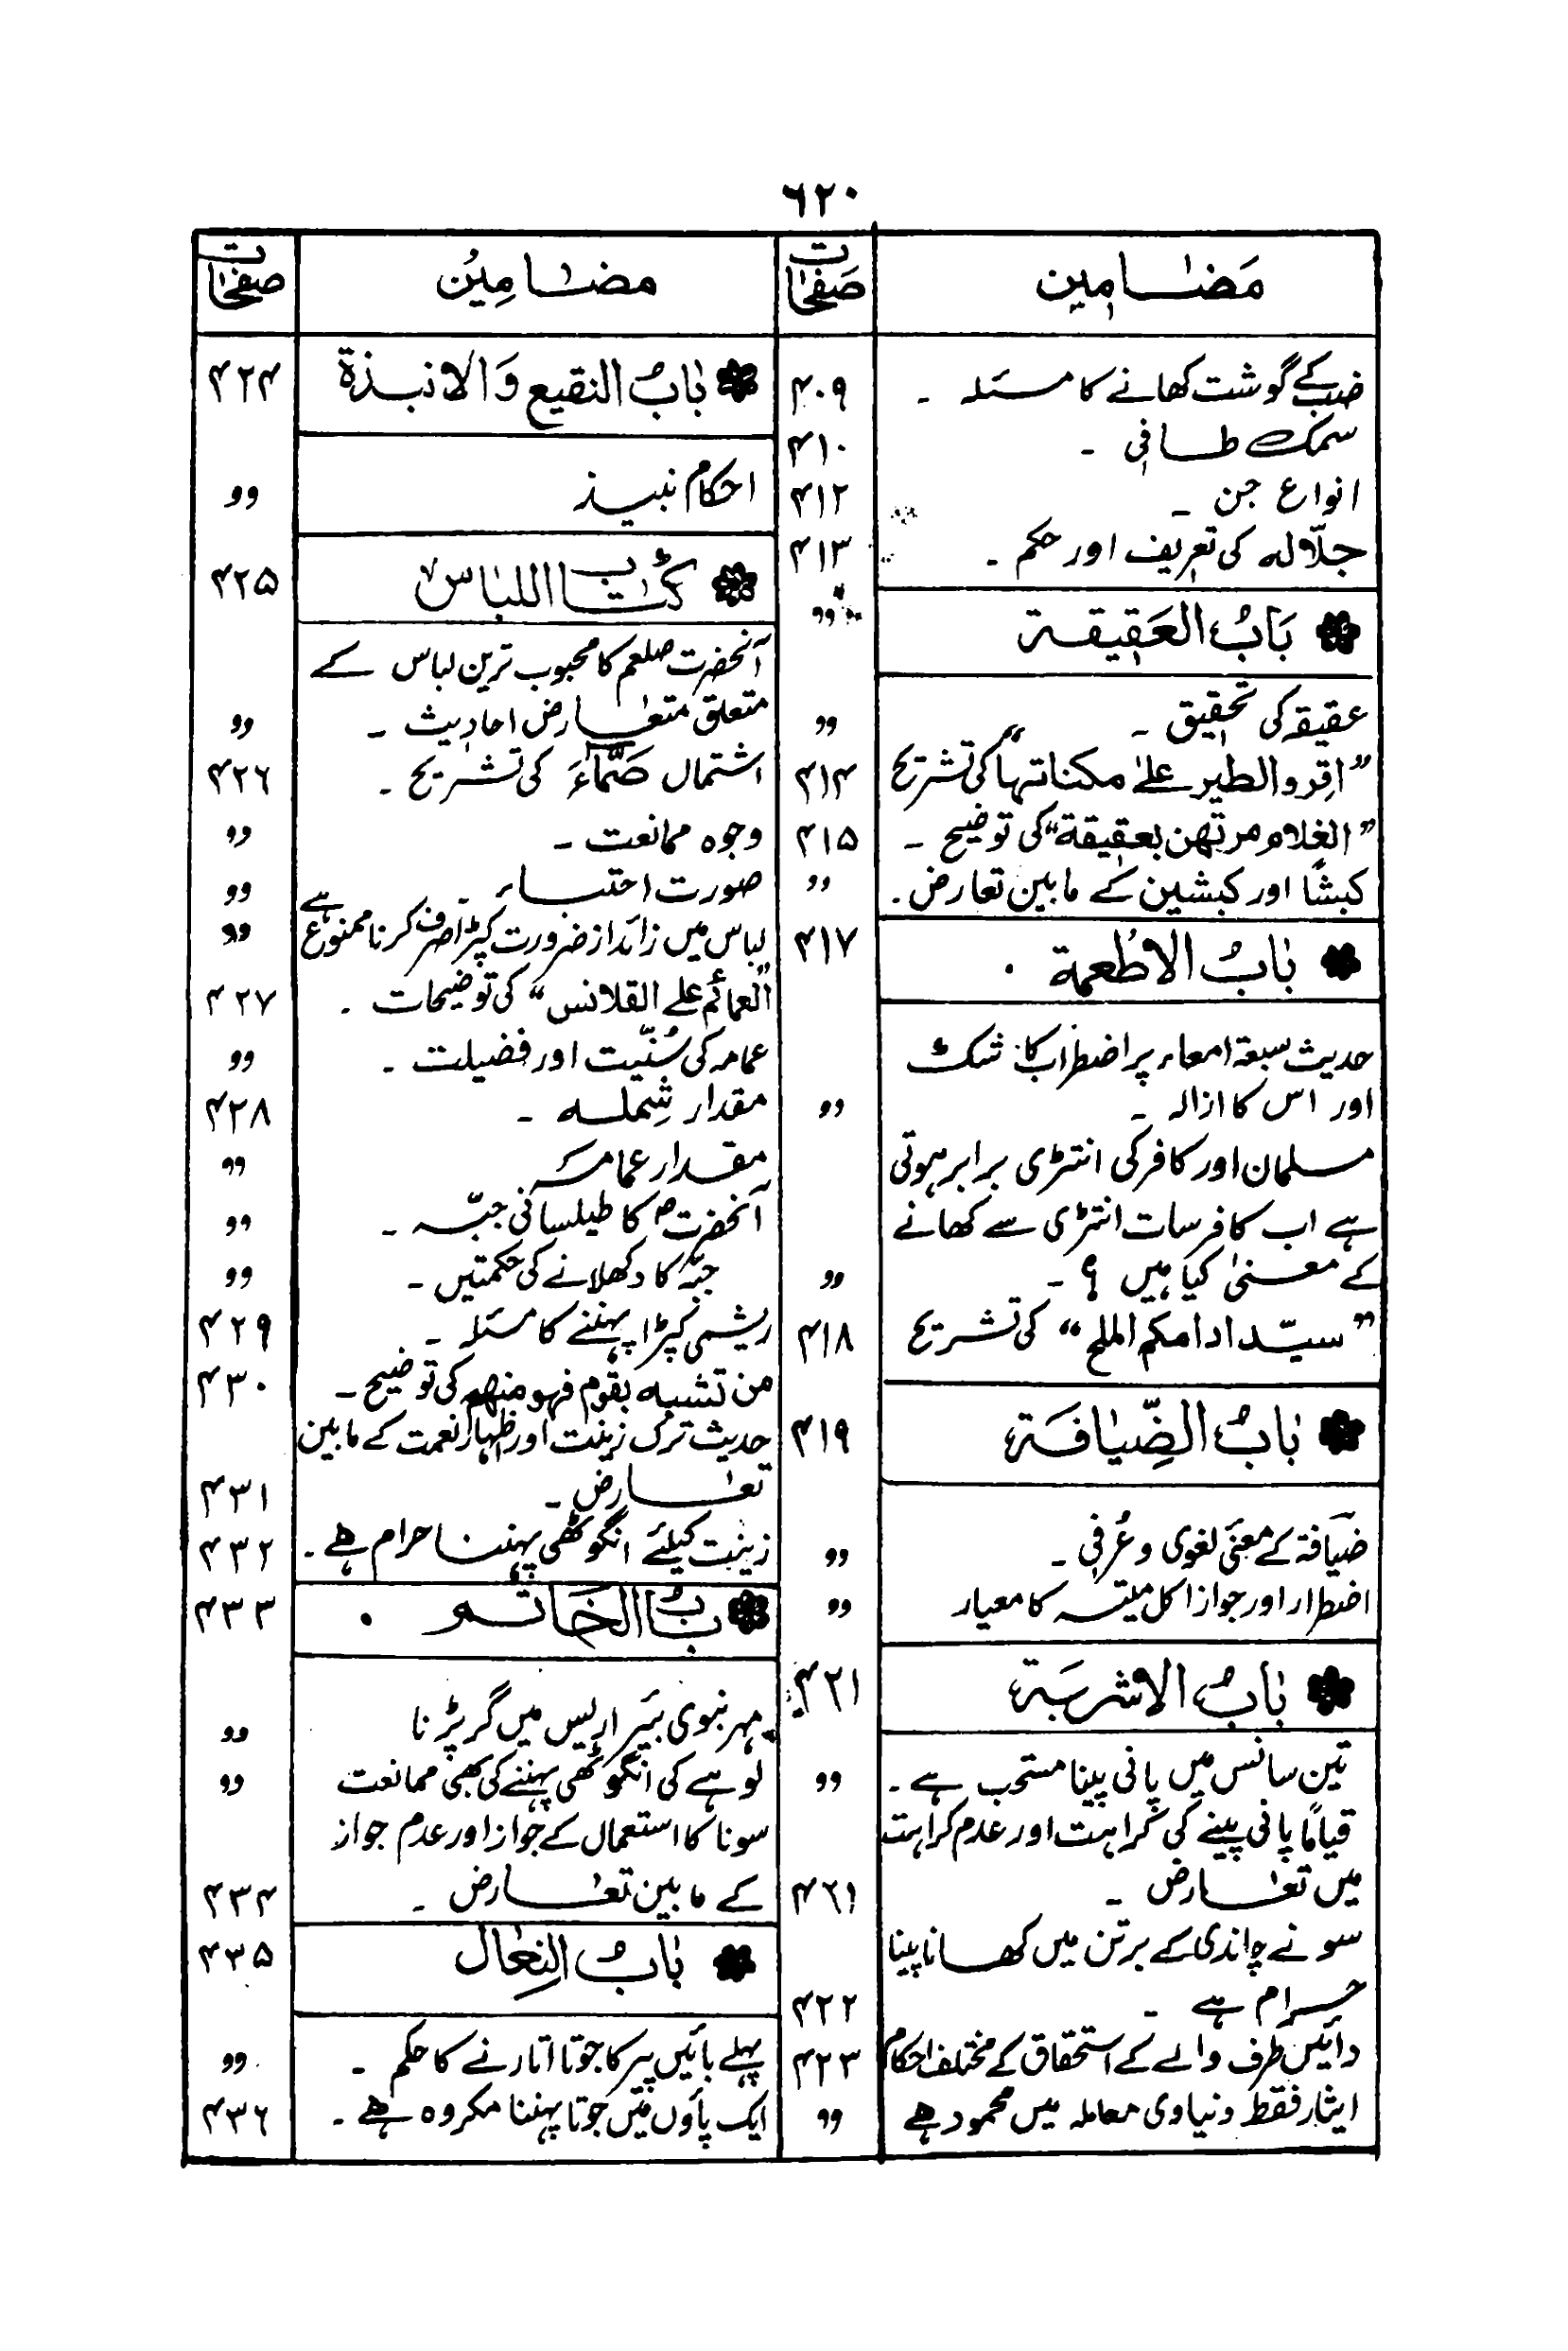 ۶۲۰
مَضَامِین صَفحَات
ضب کے گوشت کھانے کا مسئلہ ۔ ۴۰۹
سمک طافی ۔ ۴۱۰
انواع جن ۔ ۴۱۲
جلّالہ کی تعریف اور حکم ۔ ۴۱۳
بَابُ العَقِیقۃ 〃
عقیقہ کی تحقیق ۔ 〃
”اقروا الطیر علیٰ مکناتھا“ کی تشریح ۴۱۴
”الغلام مرتھن بعقیقۃ“ کی توضیح ۔ ۴۱۵
کبشًا اور کبشین کے مابین تعارض ۔ 〃
بَابُ الاطْعمۃ ۔ ۴۱۷
حدیث سبعۃ امعاء پر اضطراب کا شک
اور اس کا ازالہ ۔ 〃
مسلمان اور کافر کی انتڑی برابر ہوتی
ہے اب کافر سات انتڑی سے کھانے
کے معنیٰ کیا ہیں ؟ ۔ 〃
”سیّد ادامکم الملح“ کی تشریح ۴۱۸
بَابُ الضِّیَافَۃ ۴۱۹
ضیَافۃ کے معنیٔ لغوی و عُرفی ۔ 〃
اضطرار اور جواز اکل میتہ کا معیار 〃
بَابُ الاشرِبَۃ ۴۲۱
تین سانس میں پانی پینا مستحب ہے ۔ 〃
قیامًا پانی پینے کی کراہت اور عدم کراہت
میں تعارض ۔ ۴۲۱
سونے چاندی کے برتن میں کھانا پینا
حرام ہے ۔ ۴۲۲
دائیں طرف والے کے استحقاق کے مختلف احکام ۴۲۳
ایثار فقط دنیاوی معاملہ میں محمود ہے 〃
مضَامِیْن صفحَات
بَابُ النقیع وَالانبذۃ ۴۲۴
احکام نبیذ 〃
کِتَابُ اللبَاس ۴۲۵
آنحضرت صلعم کا محبوب ترین لباس کے
متعلق متعارض احادیث ۔ 〃
اشتمال صَمَّاءَ کی تشریح ۔ ۴۲۶
وجوہ ممانعت ۔ 〃
صورت احتباء ۔ 〃
لباس میں زائد از ضرورت کپڑا صرف کرنا ممنوع ہے 〃
”العمائم علی القلانس“ کی توضیحات ۔ ۴۲۷
عمامہ کی سُنّیت اور فضیلت ۔ 〃
مقدار شِملہ ۔ ۴۲۸
مقدار عمامہ 〃
آنحضرتؐ کا طیلسانی جبّہ ۔ 〃
جبّہ کا دکھلانے کی حکمتیں ۔ 〃
ریشمی کپڑا پہننے کا مسئلہ ۔ ۴۲۹
من تشبہ بقوم فھو منھم کی توضیح ۔ ۴۳۰
حدیث ترک زینت اور اظہار نعمت کے مابین
تعارض ۔ ۴۳۱
زینت کیلئے انگوٹھی پہننا حرام ہے ۔ ۴۳۲
بَابُ الخَاتم ۔ ۴۳۳
مہر نبوی بئر اریس میں گر پڑنا 〃
لوہے کی انگوٹھی پہننے کی بھی ممانعت 〃
سونا کا استعمال کے جواز اور عدم جواز
کے مابین تعارض ۔ ۴۳۴
بَابُ النِعَال ۴۳۵
پہلے بائیں پیر کا جوتا اتارنے کا حکم ۔ 〃
ایک پاؤں میں جوتا پہننا مکروہ ہے ۔ ۴۳۶